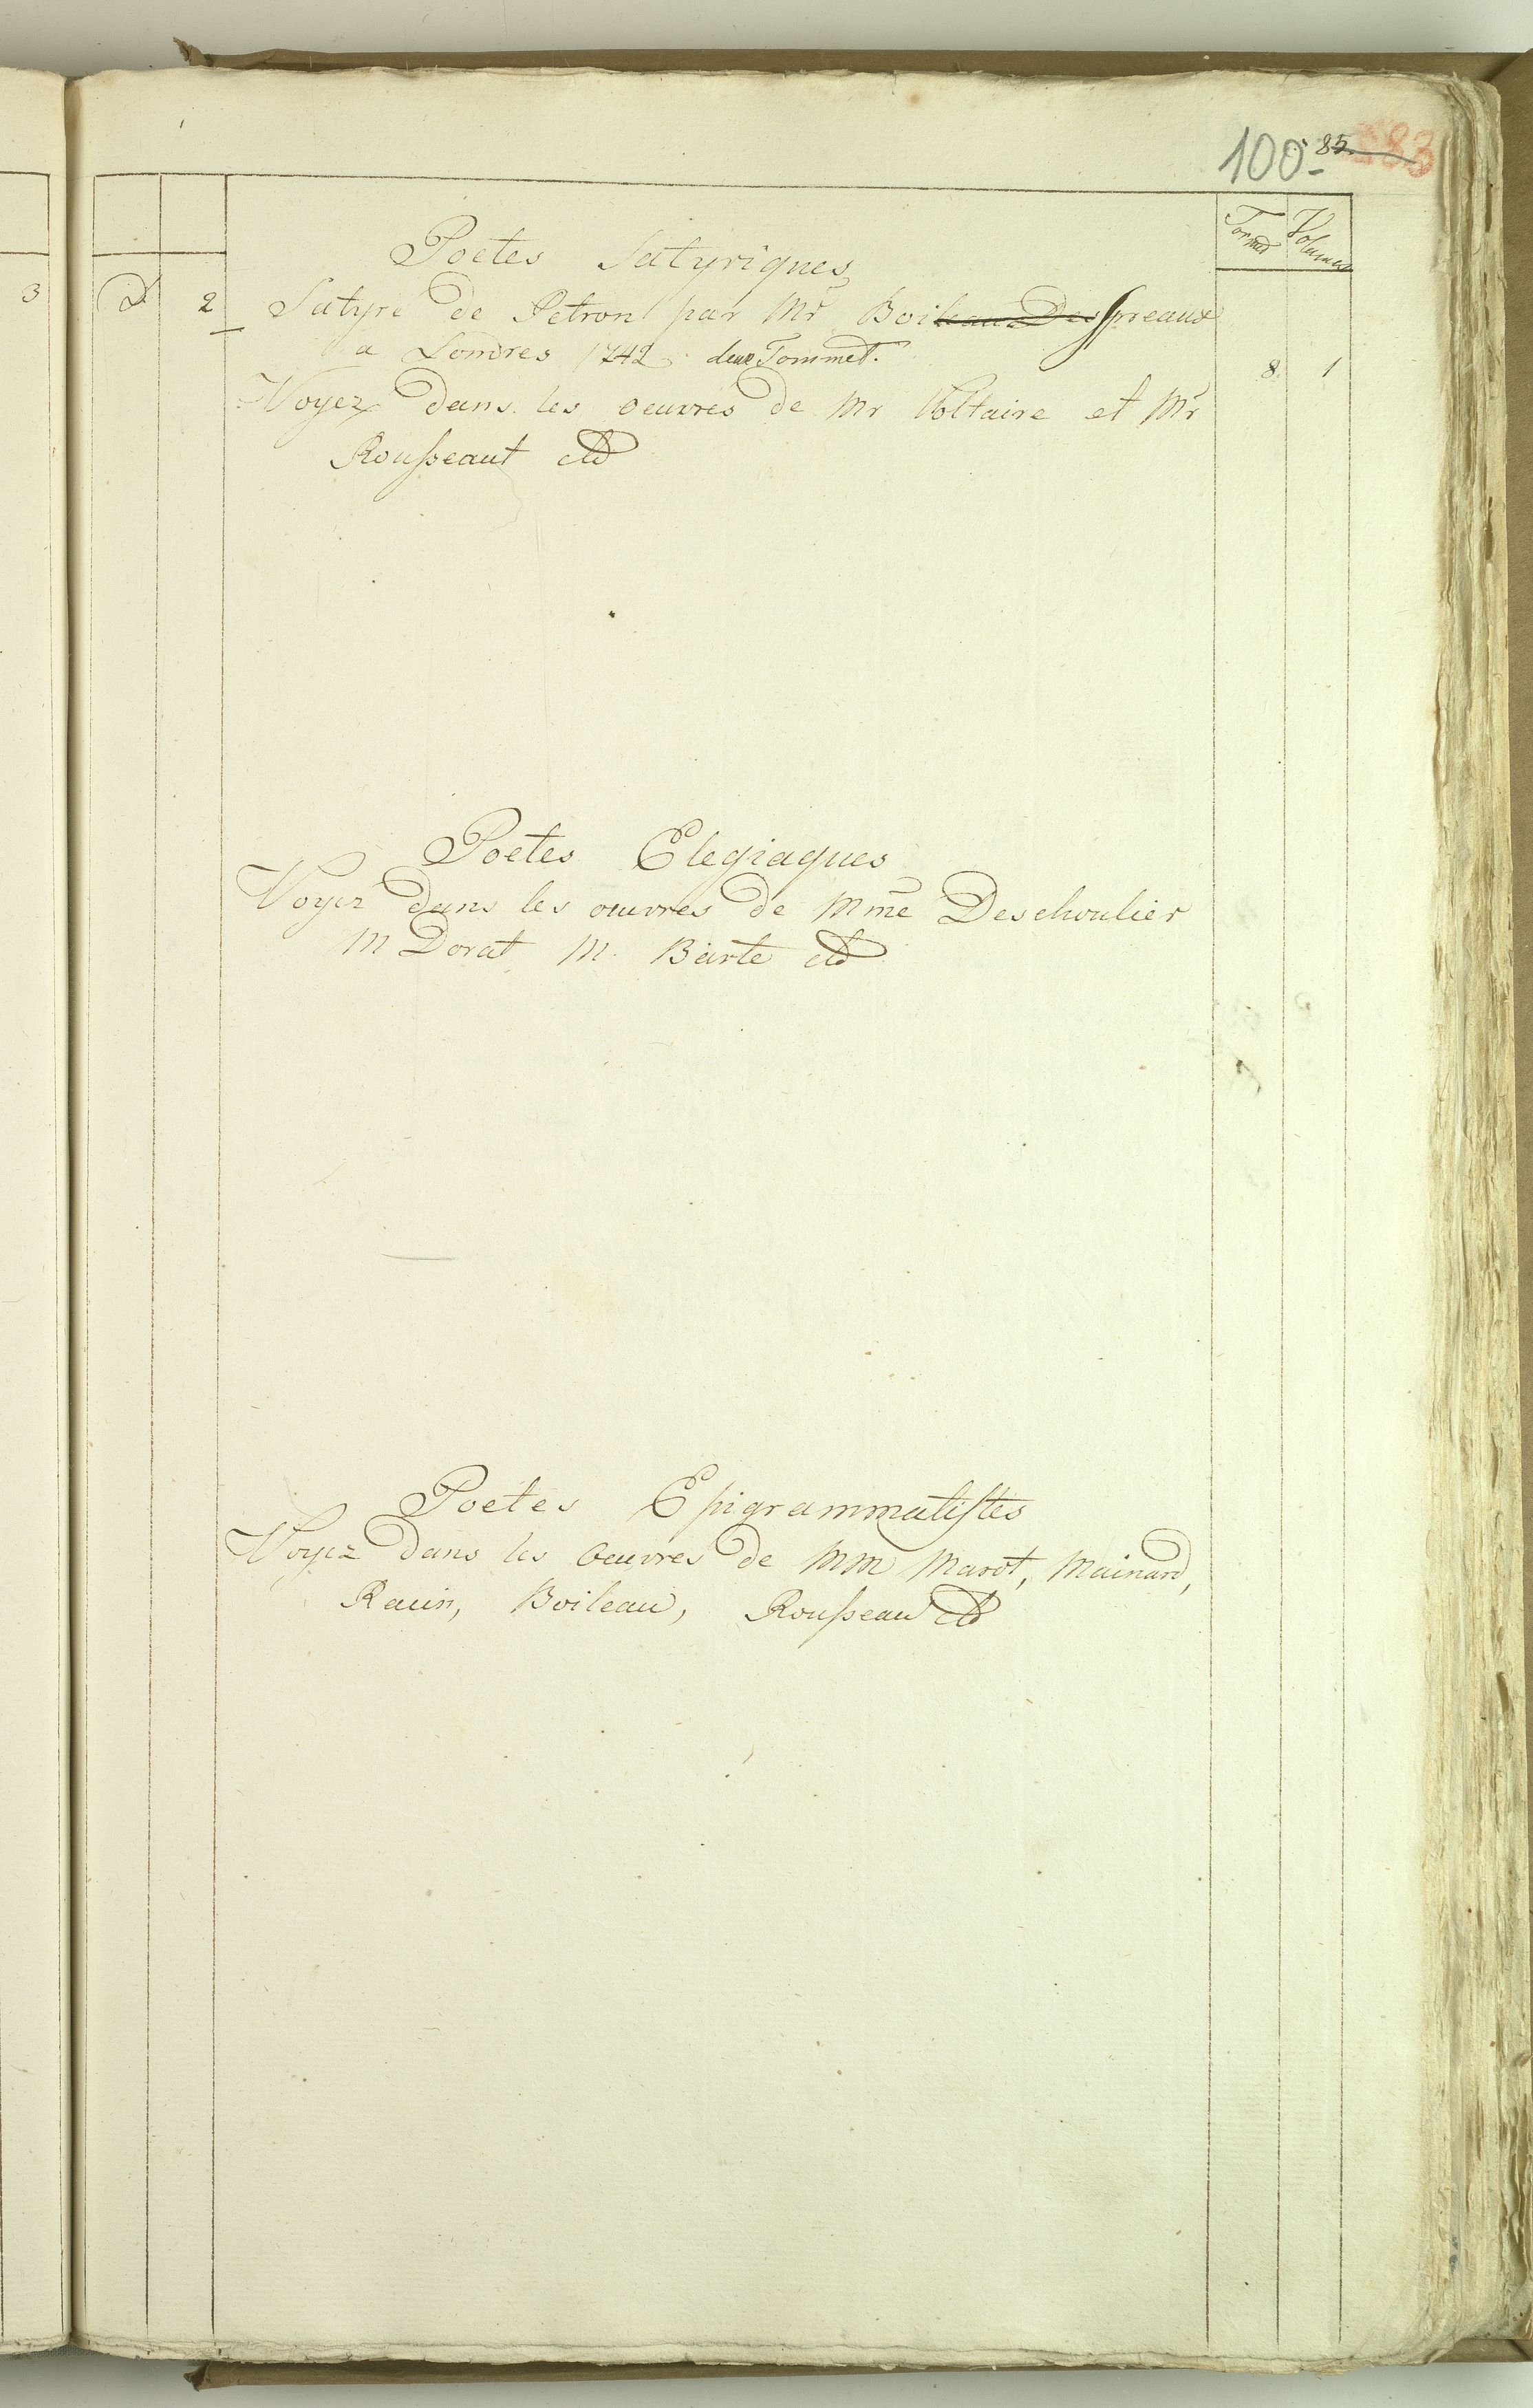 100. 85. 83
Formes Volumes
Poetes Satyriques
D. 2 Satyre de Petron par Mr Boileau Despreaux
a Londres 1742. deux Tommet. 8 1
Voyez dans les oeuvres de Mr Voltaire et Mr
Rousseaut etc
3
Poetes Elegiaques
Voyez dans les oeuvres de Mme Deschoulier
M Dorat M. Barte etc
Poetes Epigrammatistes
Voyez dans les Oeuvres de MM Marot, Mainard,
Racin, Boileau, Rousseau etc